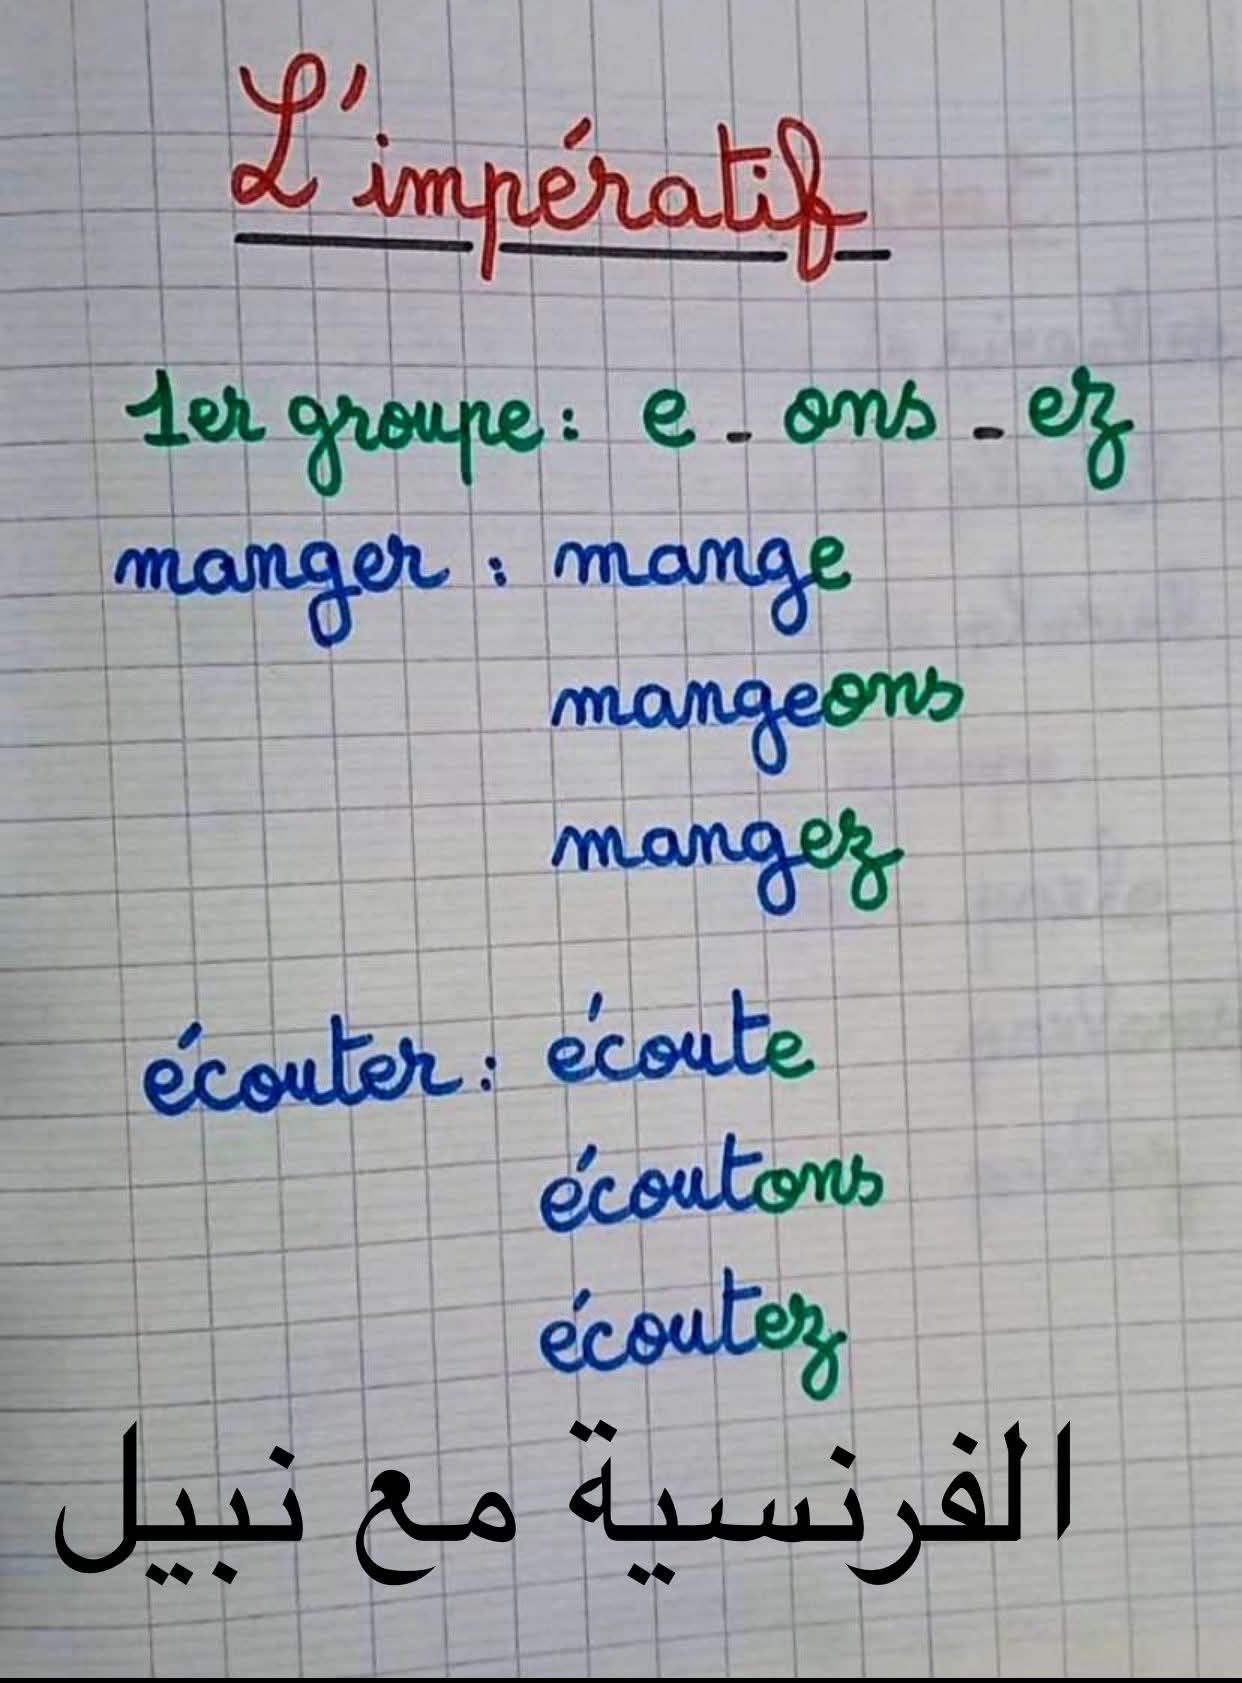 L'impératif
1er groupe : e - ons - ez
manger : mange
mangeons
mangez
écouter : écoute
écoutons
écoutez
الفرنسية مع نبيل